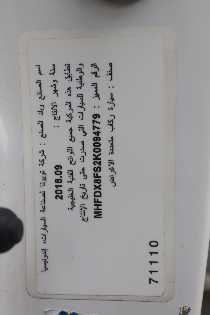 اسم الصانع وبلد الصنع : شركة تويوتا لصناعة السيارات، إندونيسيا
سنة وشهر الإنتاج :
2018.09
تطابق هذه المركبة جميع اللوائح الفنية الخليجية
والوطنية للسيارات التي صدرت حتى تاريخ الإنتاج
الرقم المميز : MHFDX8FS2K0094779
صنف : سيارة ركاب متعددة الأغراض
71110